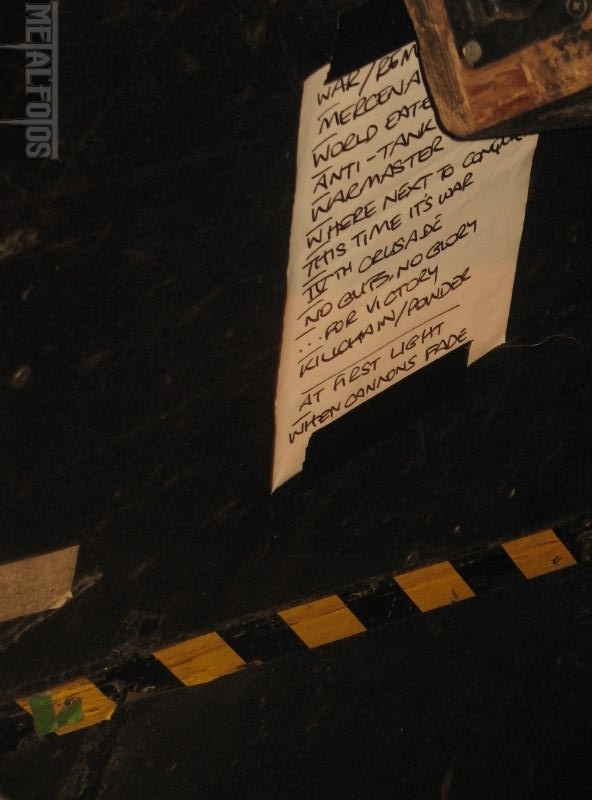 METALFOTOS
WAR/REM
MERCENA
WORLD EATE
ANTI-TANK
WARMASTER
WHERE NEXT TO CONQUE
THIS TIME IT'S WAR
IVTH CRUSADE
NO GUTS, NO GLORY
...FOR VICTORY
KILLCHAIN/POWDER
AT FIRST LIGHT
WHEN CANNONS FADE